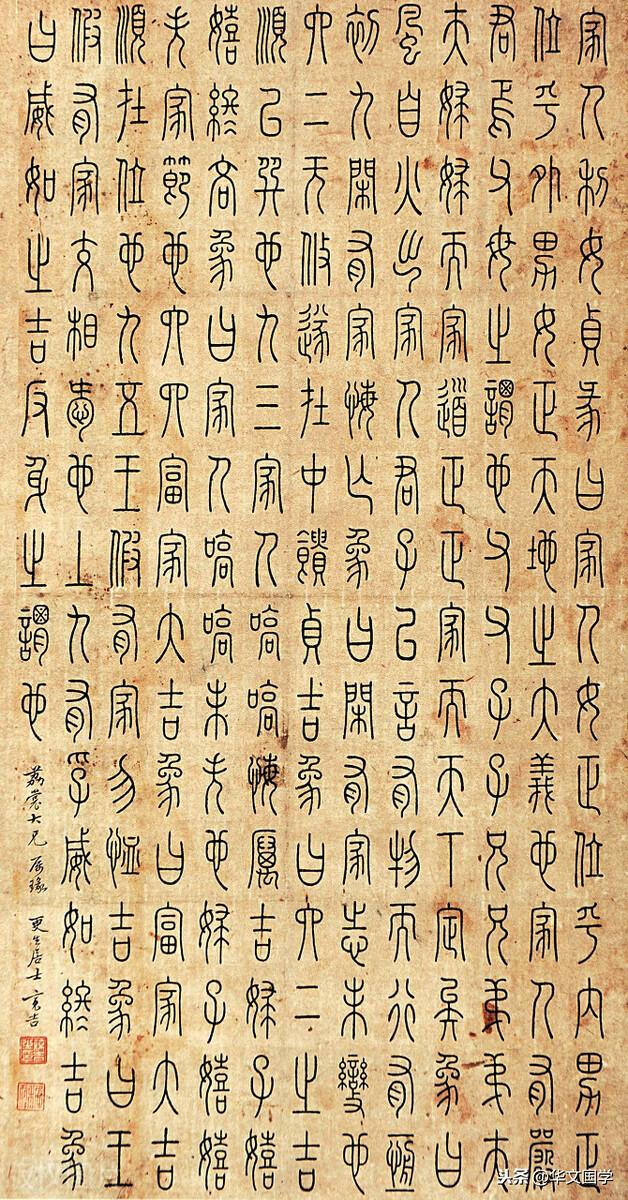 家人利女貞彖曰家人女正位乎内男正
位乎外男女正天地之大義也家人有嚴
君焉父母之謂也父父子子兄兄弟弟夫
夫婦婦而家道正正家而天下定矣象曰
風自火出家人君子以言有物而行有恆
初九閑有家悔亡象曰閑有家志未變也
六二无攸遂在中饋貞吉象曰六二之吉
順以巽也九三家人嗃嗃悔厲吉婦子嬉
嬉終吝象曰家人嗃嗃未失也婦子嬉嬉
失家節也六四富家大吉象曰富家大吉
順在位也九五王假有家勿恤吉象曰王
假有家交相愛也上九有孚威如終吉象
曰威如之吉反身之謂也
荔裳大兄属篆 更生居士亮吉
头条@华文国学